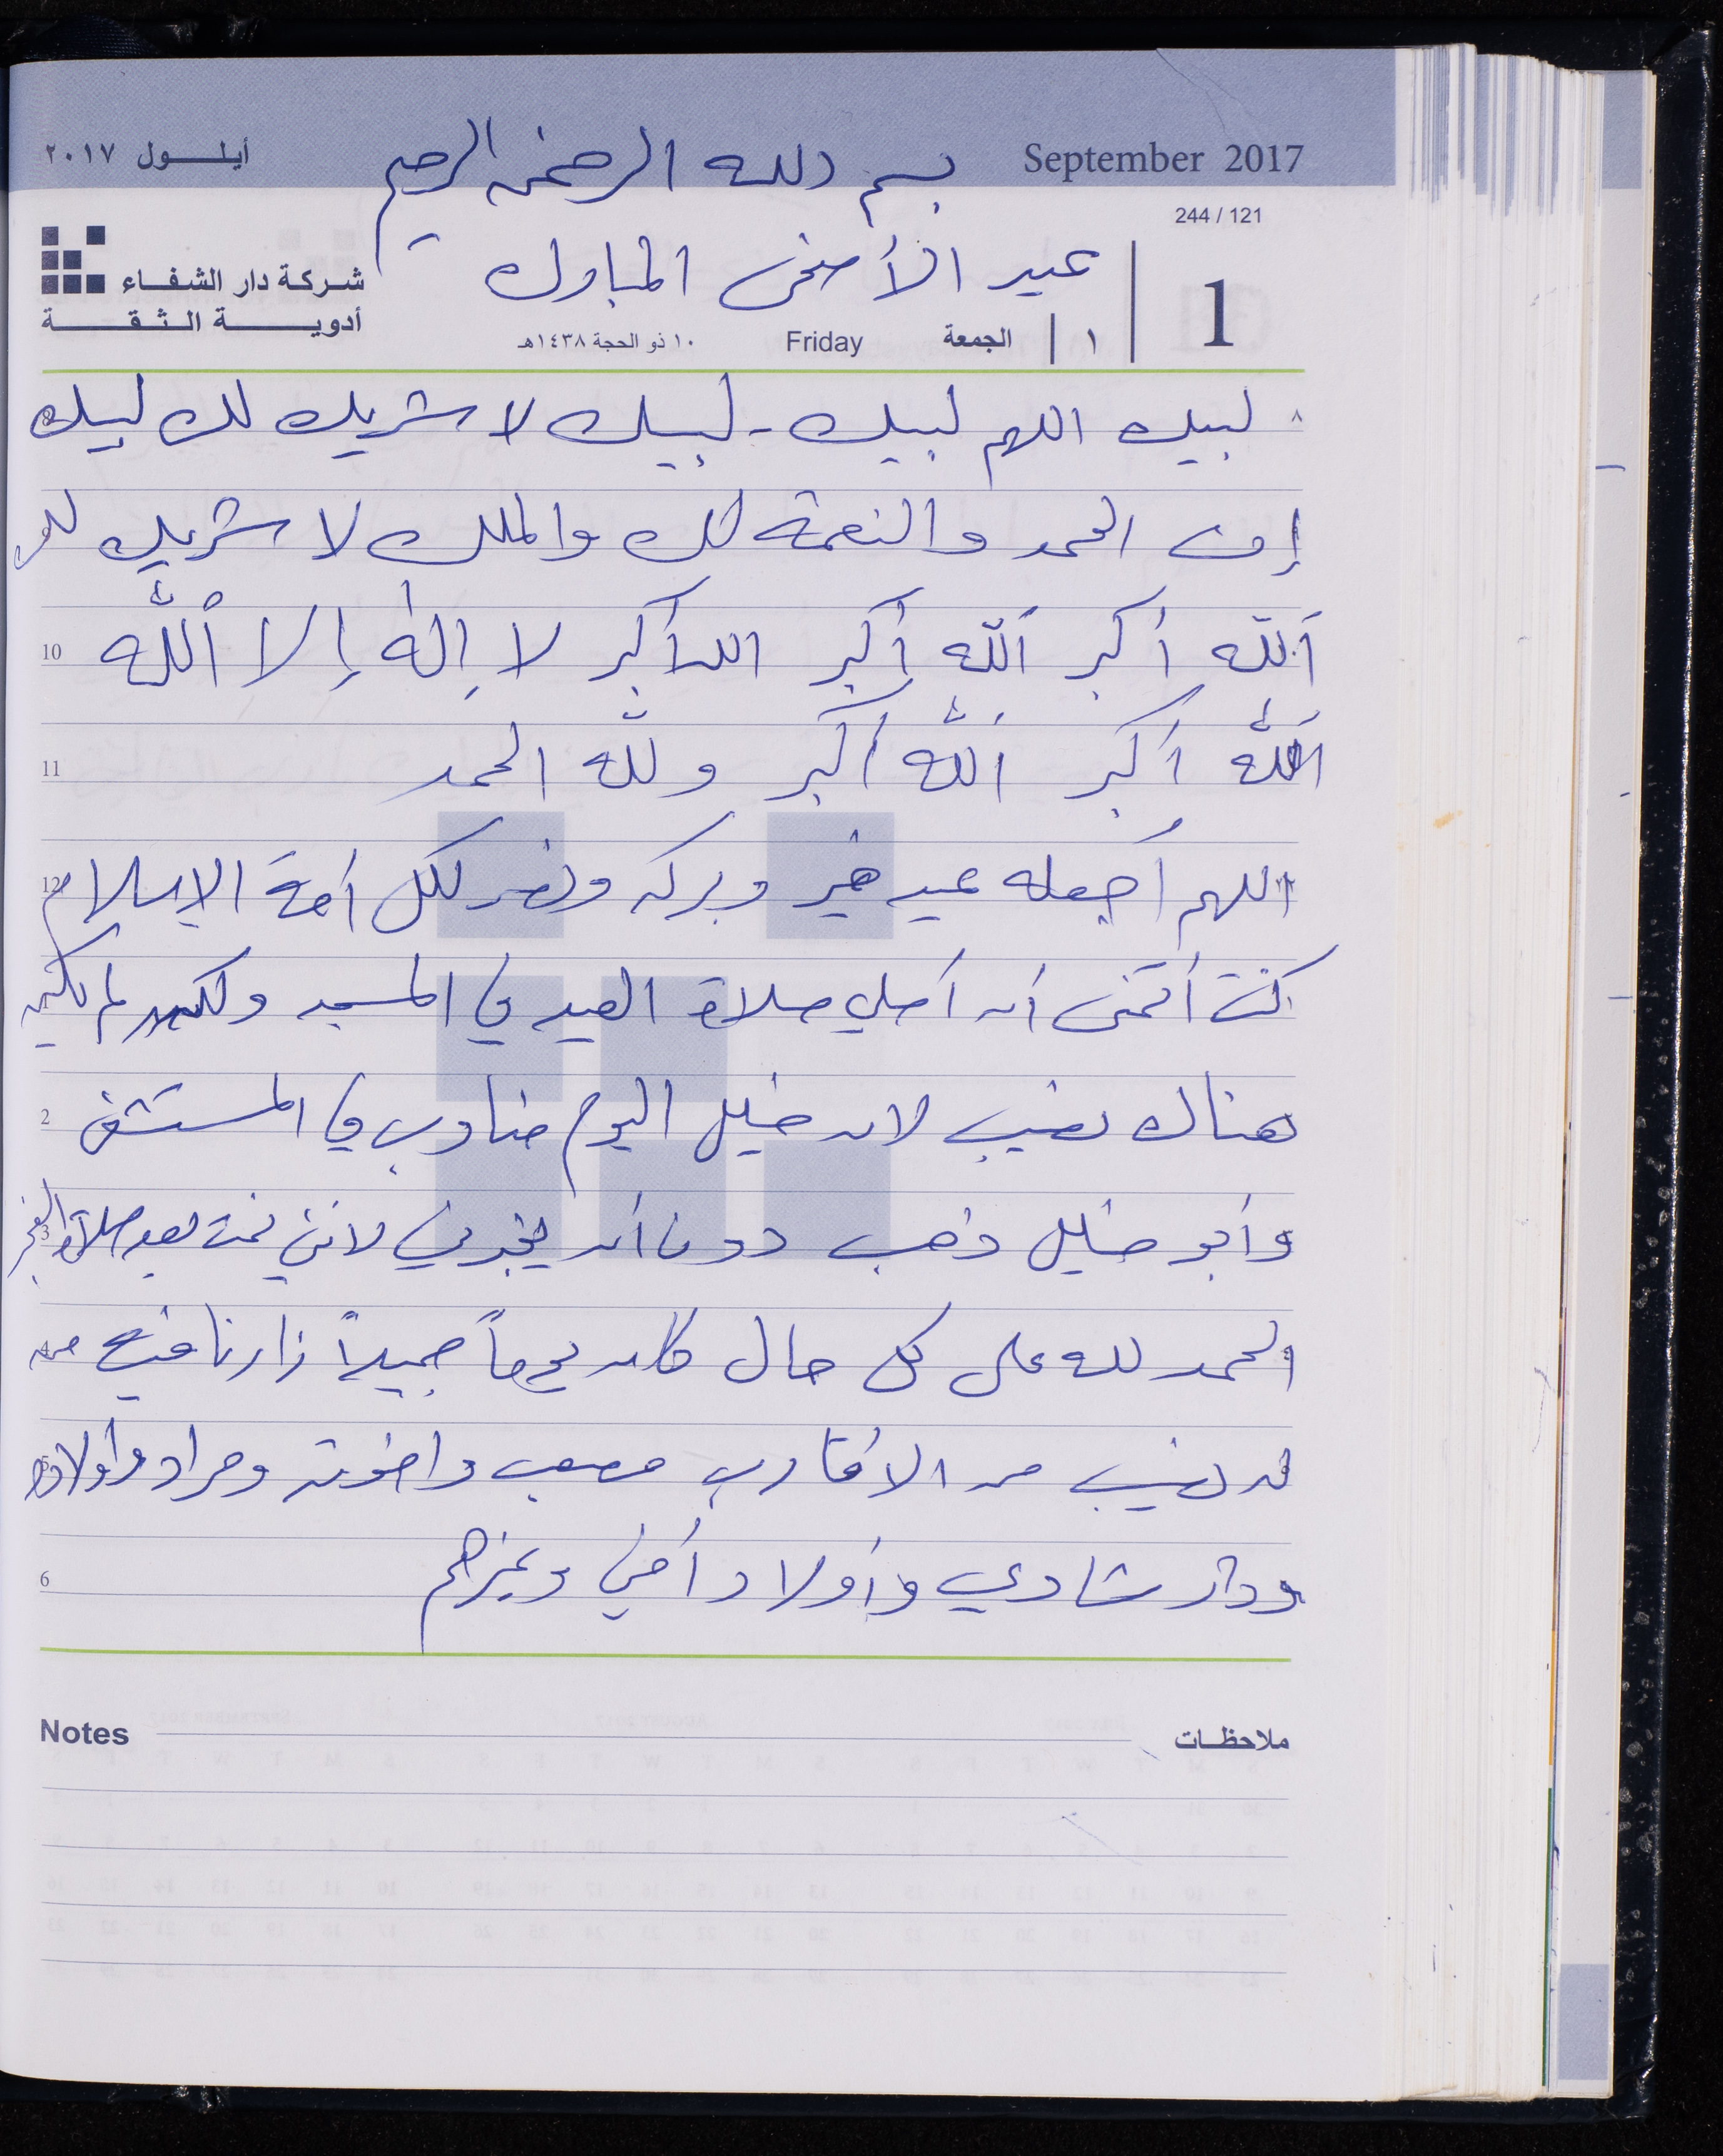 September 2017
بسم الله الرحمن الرحيم
أيلول ٢٠١٧
244 / 121
عيد الأضحى المبارك
شركة دار الشفاء
أدوية الثقة
1
١ الجمعة Friday ١٠ ذو الحجة ١٤٣٨هـ
لبيك اللهم لبيك - لبيك لا شريك لك لبيك
إن الحمد والنعمة لك والملك لا شريك لك
10 الله أكبر الله أكبر الله أكبر لا إله إلا الله
11 الله أكبر الله أكبر ولله الحمد
12 اللهم اجعله عيد خير وبركه ونصر لكل أمة الإسلام
كنت أتمنى أن أصلي صلاة العيد في المسجد ولكن لم يكن
2 هناك نصيب لان خليل اليوم مناوب في المستشفى
3 وأبو خليل ذهب دون أن يخبرني لانني نمت بعد صلاة الفجر
4 الحمد لله على كل حال كان يوماً جميلاً زارنا فيه من
5 له نصيب من الاقارب مصعب واخوته ومراد وأولاده
6 ودار شادي وأولاد أخي وغيرهم
Notes ملاحظات